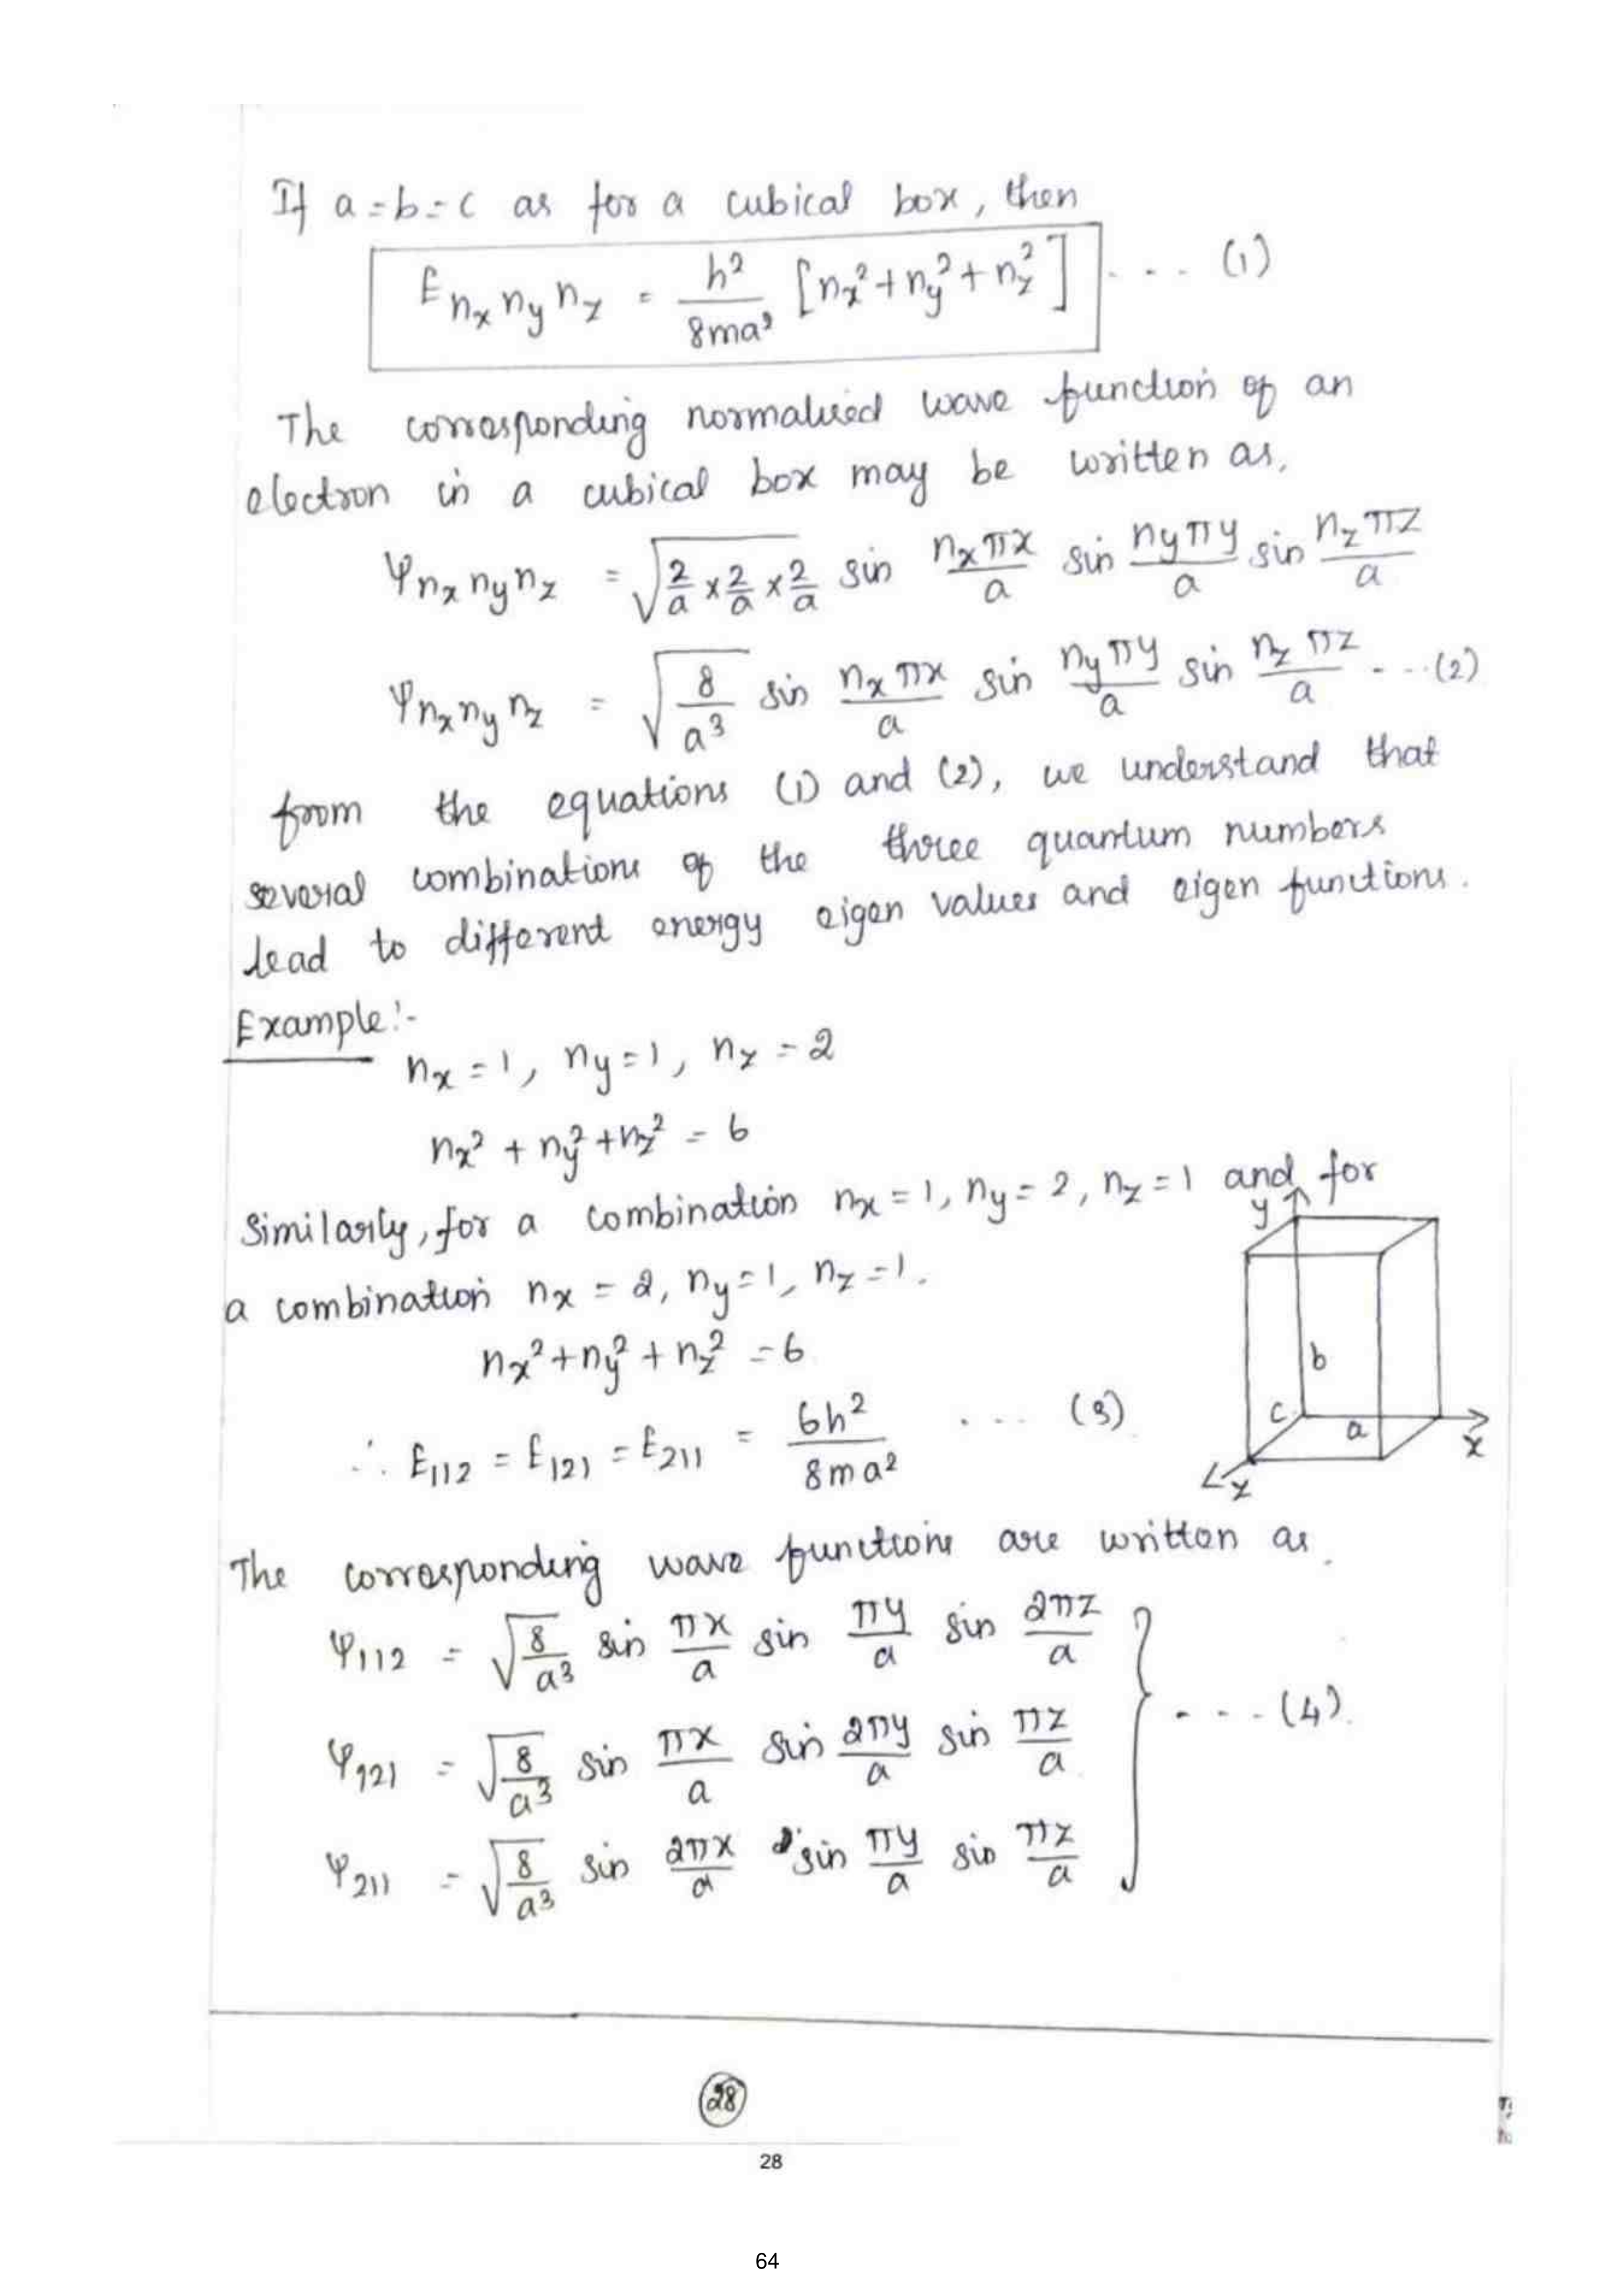 If a=b=c as for a cubical box, then
E nx ny nz = h²/8ma² [nx²+ny²+nz²] ... (1)
The corresponding normalised wave function of an
electron in a cubical box may be written as,
ψnx ny nz = √(2/a × 2/a × 2/a) sin nxπx/a sin nyπy/a sin nzπz/a
ψnx ny nz = √(8/a³) sin nxπx/a sin nyπy/a sin nzπz/a ...(2)
from the equations (1) and (2), we understand that
several combinations of the three quantum numbers
lead to different energy eigen values and eigen functions.
Example:-
nx = 1, ny = 1, nz = 2
nx² + ny² + nz² = 6
Similarly, for a combination nx = 1, ny = 2, nz = 1 and for
a combination nx = 2, ny = 1, nz = 1.
nx² + ny² + nz² = 6
∴ E112 = E121 = E211 = 6h²/8ma² ... (3)
y
b
c
a
x
z
The corresponding wave functions are written as.
ψ112 = √(8/a³) sin πx/a sin πy/a sin 2πz/a
ψ121 = √(8/a³) sin πx/a sin 2πy/a sin πz/a
... (4).
ψ211 = √(8/a³) sin 2πx/a sin πy/a sin πz/a
28
28
64